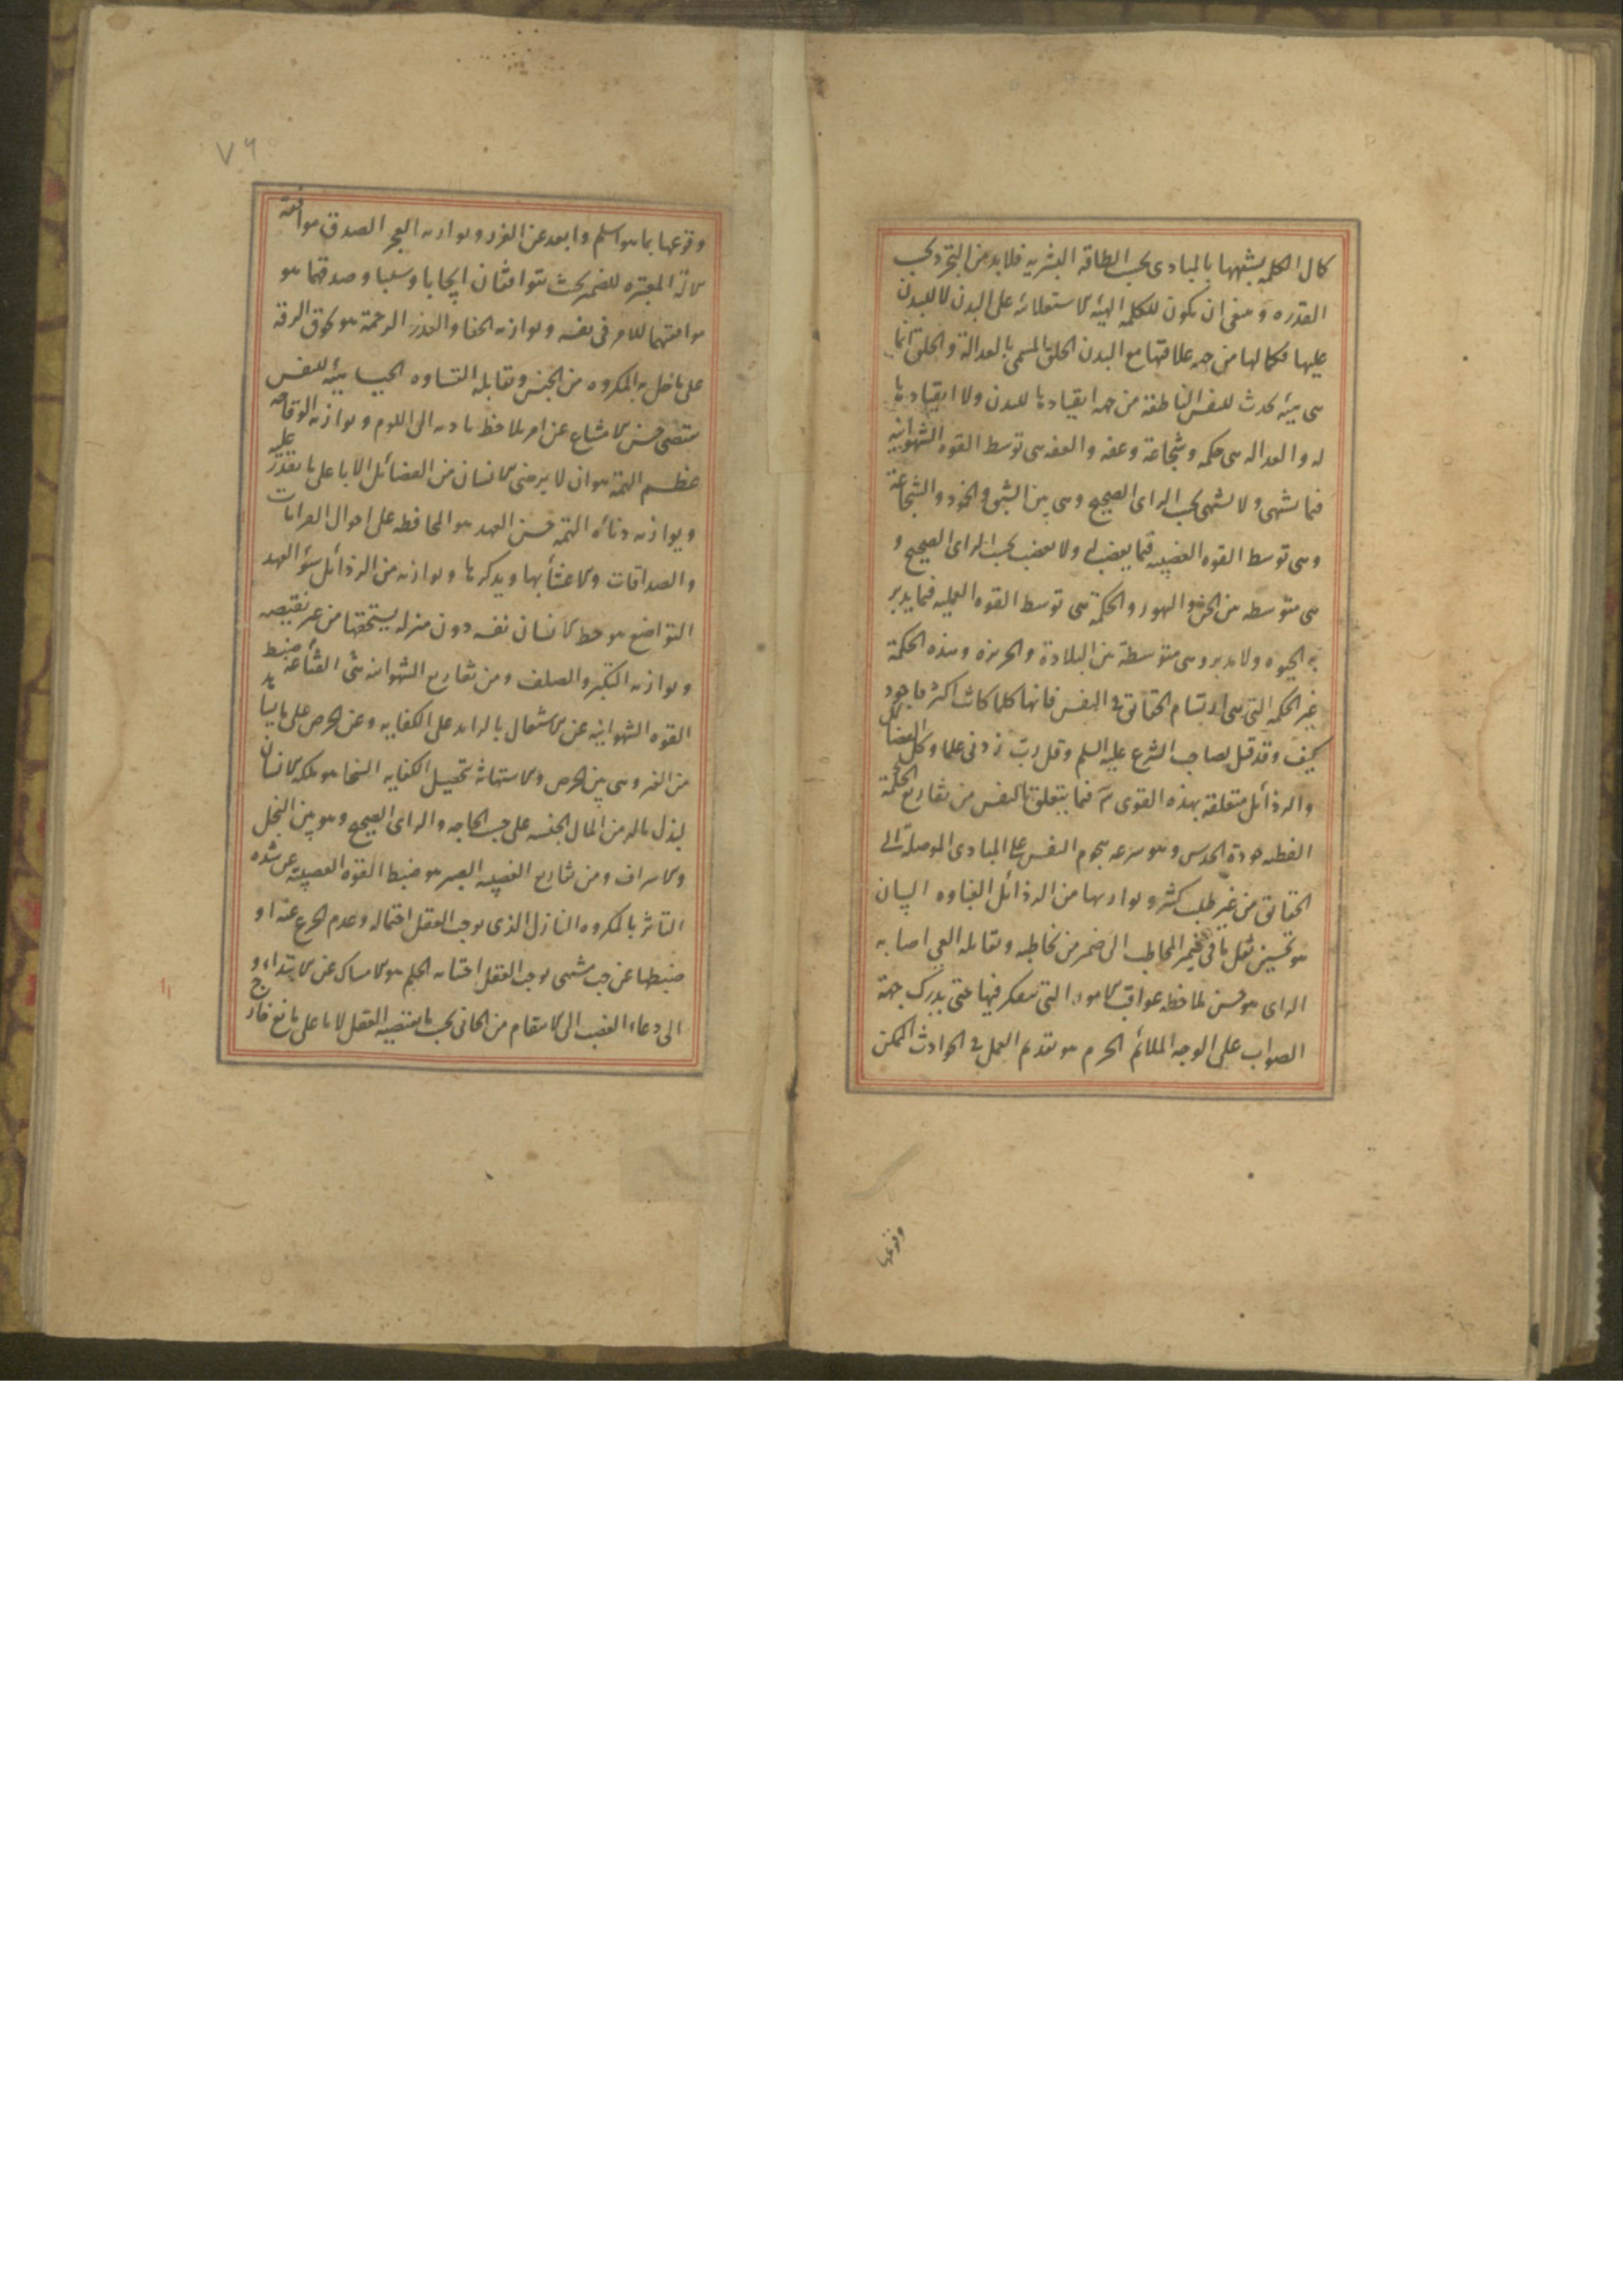 كمال الكلمه بشبهها بالمبادى بحسب الطاقه البشريه فلا بد من التجرد بحسب
القدره و ينبغى ان يكون للكلمه الهيئه الاستعلائه على البدن لا للبدن
عليها فكمالها من جهه علاقتها مع البدن الخلق المسمى بالعدالة والخلق انما
هى هيئه تحدث للنفس الناطقة من جهه انقيادها للبدن ولا انقيادها
له و العداله هى حكمه وشجاعة وعفه والعفه هى توسط القوه الشهوانيه
فيما تشتهى ولا تشتهى بحسب الراى الصحيح وهى بين الشبق والخمود والشجاعة
وهى توسط القوه الغضبيه فيما يغضب له ولا يغضب بحسب الراى الصحيح و
هى متوسطه بين الجبن والتهور والحكمة هى توسط القوه العمليه فيما يدبر
به الحيوه ولا يدبر وهى متوسطة بين البلادة والجربزه وهذه الحكمة
غير الحكمه التى هى ارتسام الحقائق فى النفس فانها كلما كانت اكثر فاجود
كيف وقد قيل لصاحب الشرع عليه السلم وقل رب زدنى علما وكل الفضائل
والرذائل متعلقة بهذه القوى فيما يتعلق بالنفس من تفاريع الحكمة
الفطنه جودة الحدس وهو سرعه هجوم النفس على المبادى الموصلة الى
الحقائق من غير طلب كثير و يوازيها من الرذائل الغباوه البيان
هو تحسين نقل ما فى ضمير المخاطب الى ضمير من يخاطبه ويقابله العى اصابه
الراى هو حسن ملاحظه عواقب الامور التى يتفكر فيها حتى يدرك جهة
الصواب على الوجه الملائم الحزم هو تقديم العمل فى الحوادث الممكن
وقوعها
٧٦
وقوعها بما هو اسلم وابعد عن الغرر و يوازيه العجز الصدق موافقة
الالة المعبره للضمير بحيث يتوافقان ايجابا و سلبا و صدقهما هو
موافقتهما للامر فى نفسه و يوازيه الخنا والهذر الرحمة هو لحوق الرقه
على ما حل به المكروه من الجنس وتقابله القساوه الحيا هيئه للنفس
يقتضى حسن الامتناع عن امر بلاحظ تاديه الى اللوم و يوازيه الوقاحه
عظم الهمة هو ان لا يرضى الانسان من الفضائل الا باعلى ما يقدر عليه
و يوازيه دنائه الهمة حسن العهد هو المحافظه على احوال القرابات
والصداقات والاعتنأ بها ويذكرها و يوازيه من الرذائل سؤ العهد
التواضع هو حط الانسان نفسه دون منزله يستحقها من غير نقيصه
و يوازيه التكبر والصلف ومن تفاريع الشهوانيه شى القناعة ضبط
القوه الشهوانيه عن الاشتغال بالزايد على الكفايه وعن الحرص على ما بيد
من الغير وهى بين الحرص والاستهانة بتحصيل الكفايه السخا هو ملكه الانسان
لبذل ماله من المال لجنسه على حسب الحاجه والراى الصحيح وهو بين البخل
والاسراف ومن تفاريع الغضبيه الصبر هو ضبط القوه الغضبيه عن شده
التاثر بالمكروه النازل الذى يوجب العقل احتماله وعدم الجزع عنه او
ضبطها عن حب مشتهى يوجب العقل اجتنابه الحلم هو الامساك عن الابتداء و
الى دعاء الغضب الى الانتقام من الجانى بحسب ما يقتضيه العقل لا ما على مانع خارج